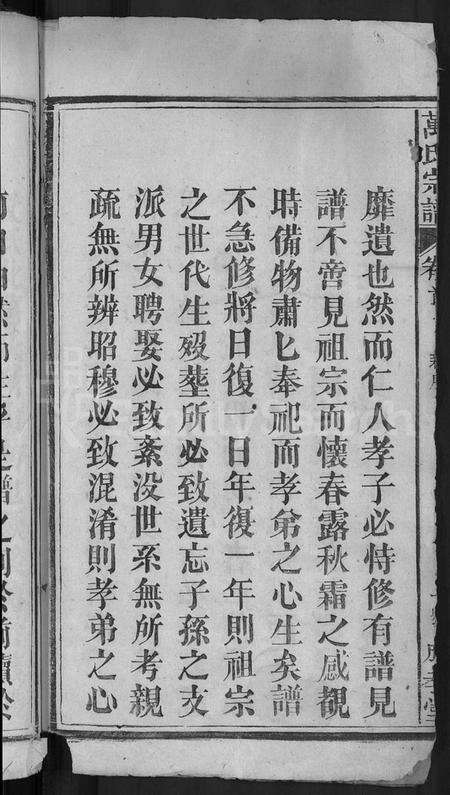 萬氏宗譜
卷首
靡遺也然而仁人孝子必恃修有譜見
譜不啻見祖宗而懷春露秋霜之感覩
時備物肅匕奉祀而孝弟之心生矣譜
不急修將日復一日年復一年則祖宗
之世代生歿塟所必致遺忘子孫之支
派男女聘娶必致紊没世系無所考親
疏無所辨昭穆必致混淆則孝弟之心